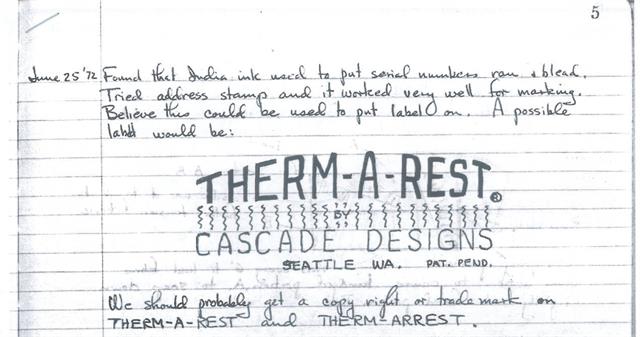 5
June 25 '72 Found that India ink used to put serial numbers ran & blead.
Tried address stamp and it worked very well for marking.
Believe this could be used to put label on. A possible
label would be:
THERM-A-REST®
BY
CASCADE DESIGNS
SEATTLE WA. PAT. PEND.
We should probably get a copy right or trade mark on
THERM-A-REST and THERM-ARREST.